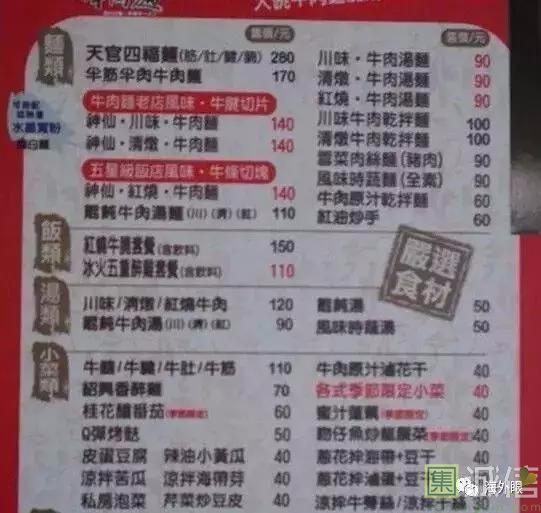 售價/元
售價/元
麵類
天官四福麵(筋/肚/腱/腩) 280
半筋半肉牛肉麵 170
可搭配
水晶寬粉
牛肉麵老店風味・牛腱切片
神仙・川味・牛肉麵 140
神仙・清燉・牛肉麵 140
五星級飯店風味・牛條切塊
神仙・紅燒・牛肉麵 140
餛飩牛肉湯麵(川)(清)(紅) 110
川味・牛肉湯麵 90
清燉・牛肉湯麵 90
紅燒・牛肉湯麵 90
川味牛肉乾拌麵 100
清燉牛肉乾拌麵 100
雪菜肉絲麵(豬肉) 90
風味時蔬麵(全素) 90
牛肉原汁乾拌麵 60
紅油炒手 60
飯類
紅燒牛腩套餐(含飲料) 150
冰火五重醉雞套餐(含飲料) 110
嚴選
食材
湯類
川味/清燉/紅燒牛肉 120
餛飩牛肉湯(川)(清)(紅) 90
餛飩湯 50
風味時蔬湯 50
小菜類
牛腸/牛腱/牛肚/牛筋 110
紹興香醉雞 70
桂花釀番茄(季節限定) 60
Q彈烤麩 50
皮蛋豆腐 辣油小黃瓜 40
涼拌苦瓜 涼拌海帶芽 40
私房泡菜 芹菜炒豆皮 40
牛肉原汁滷花干 40
各式季節限定小菜 40
蜜汁蓮藕(季節限定) 40
吻仔魚炒龍鬚菜(季節限定) 40
蔥花拌海帶+豆干 40
蔥花拌滷蛋+豆干
集 誠信
海外眼